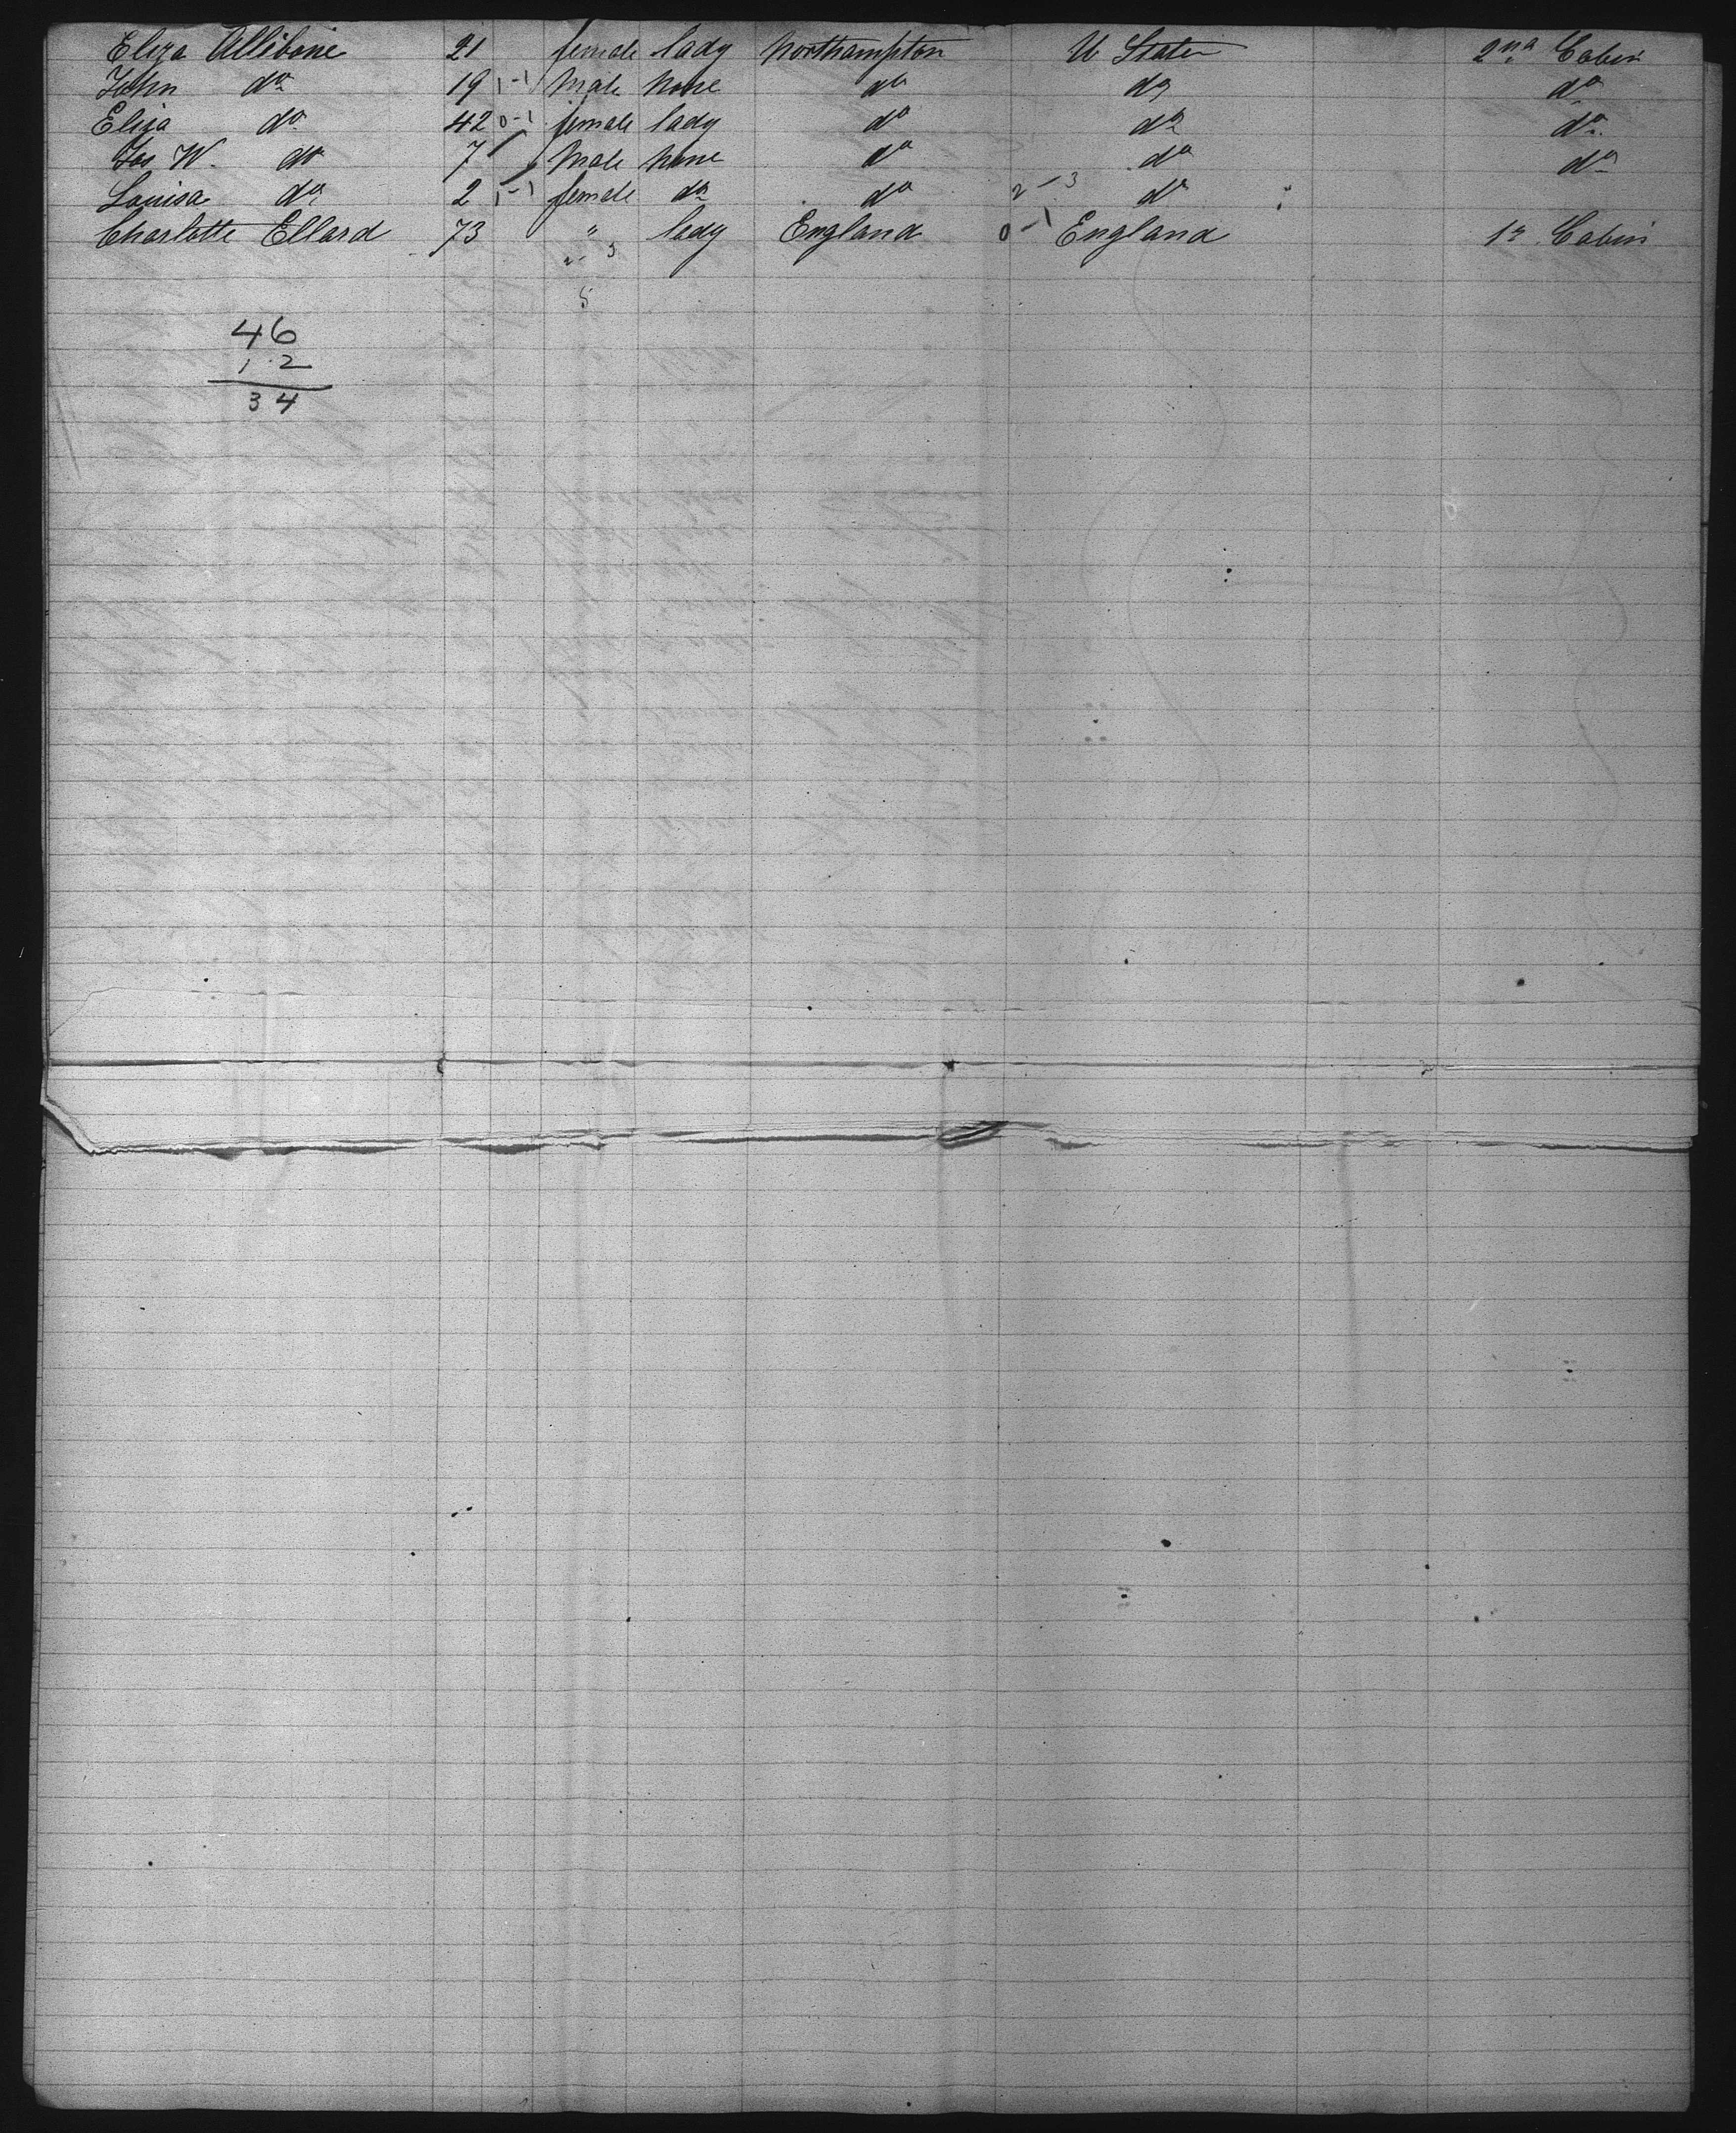 Eliza Allibone 21 female lady Northampton U States 2nd Cabin
John do 19 1-1 Male None do do do
Eliza do 42 0-1 female lady do do do
Jos W. do 7 Male None do do do
Louisa do 2 1-1 female do do 2-3 do
Charlotte Ellard 73 " lady England 0-1 England 1st Cabin
2-3
5
46
12
34